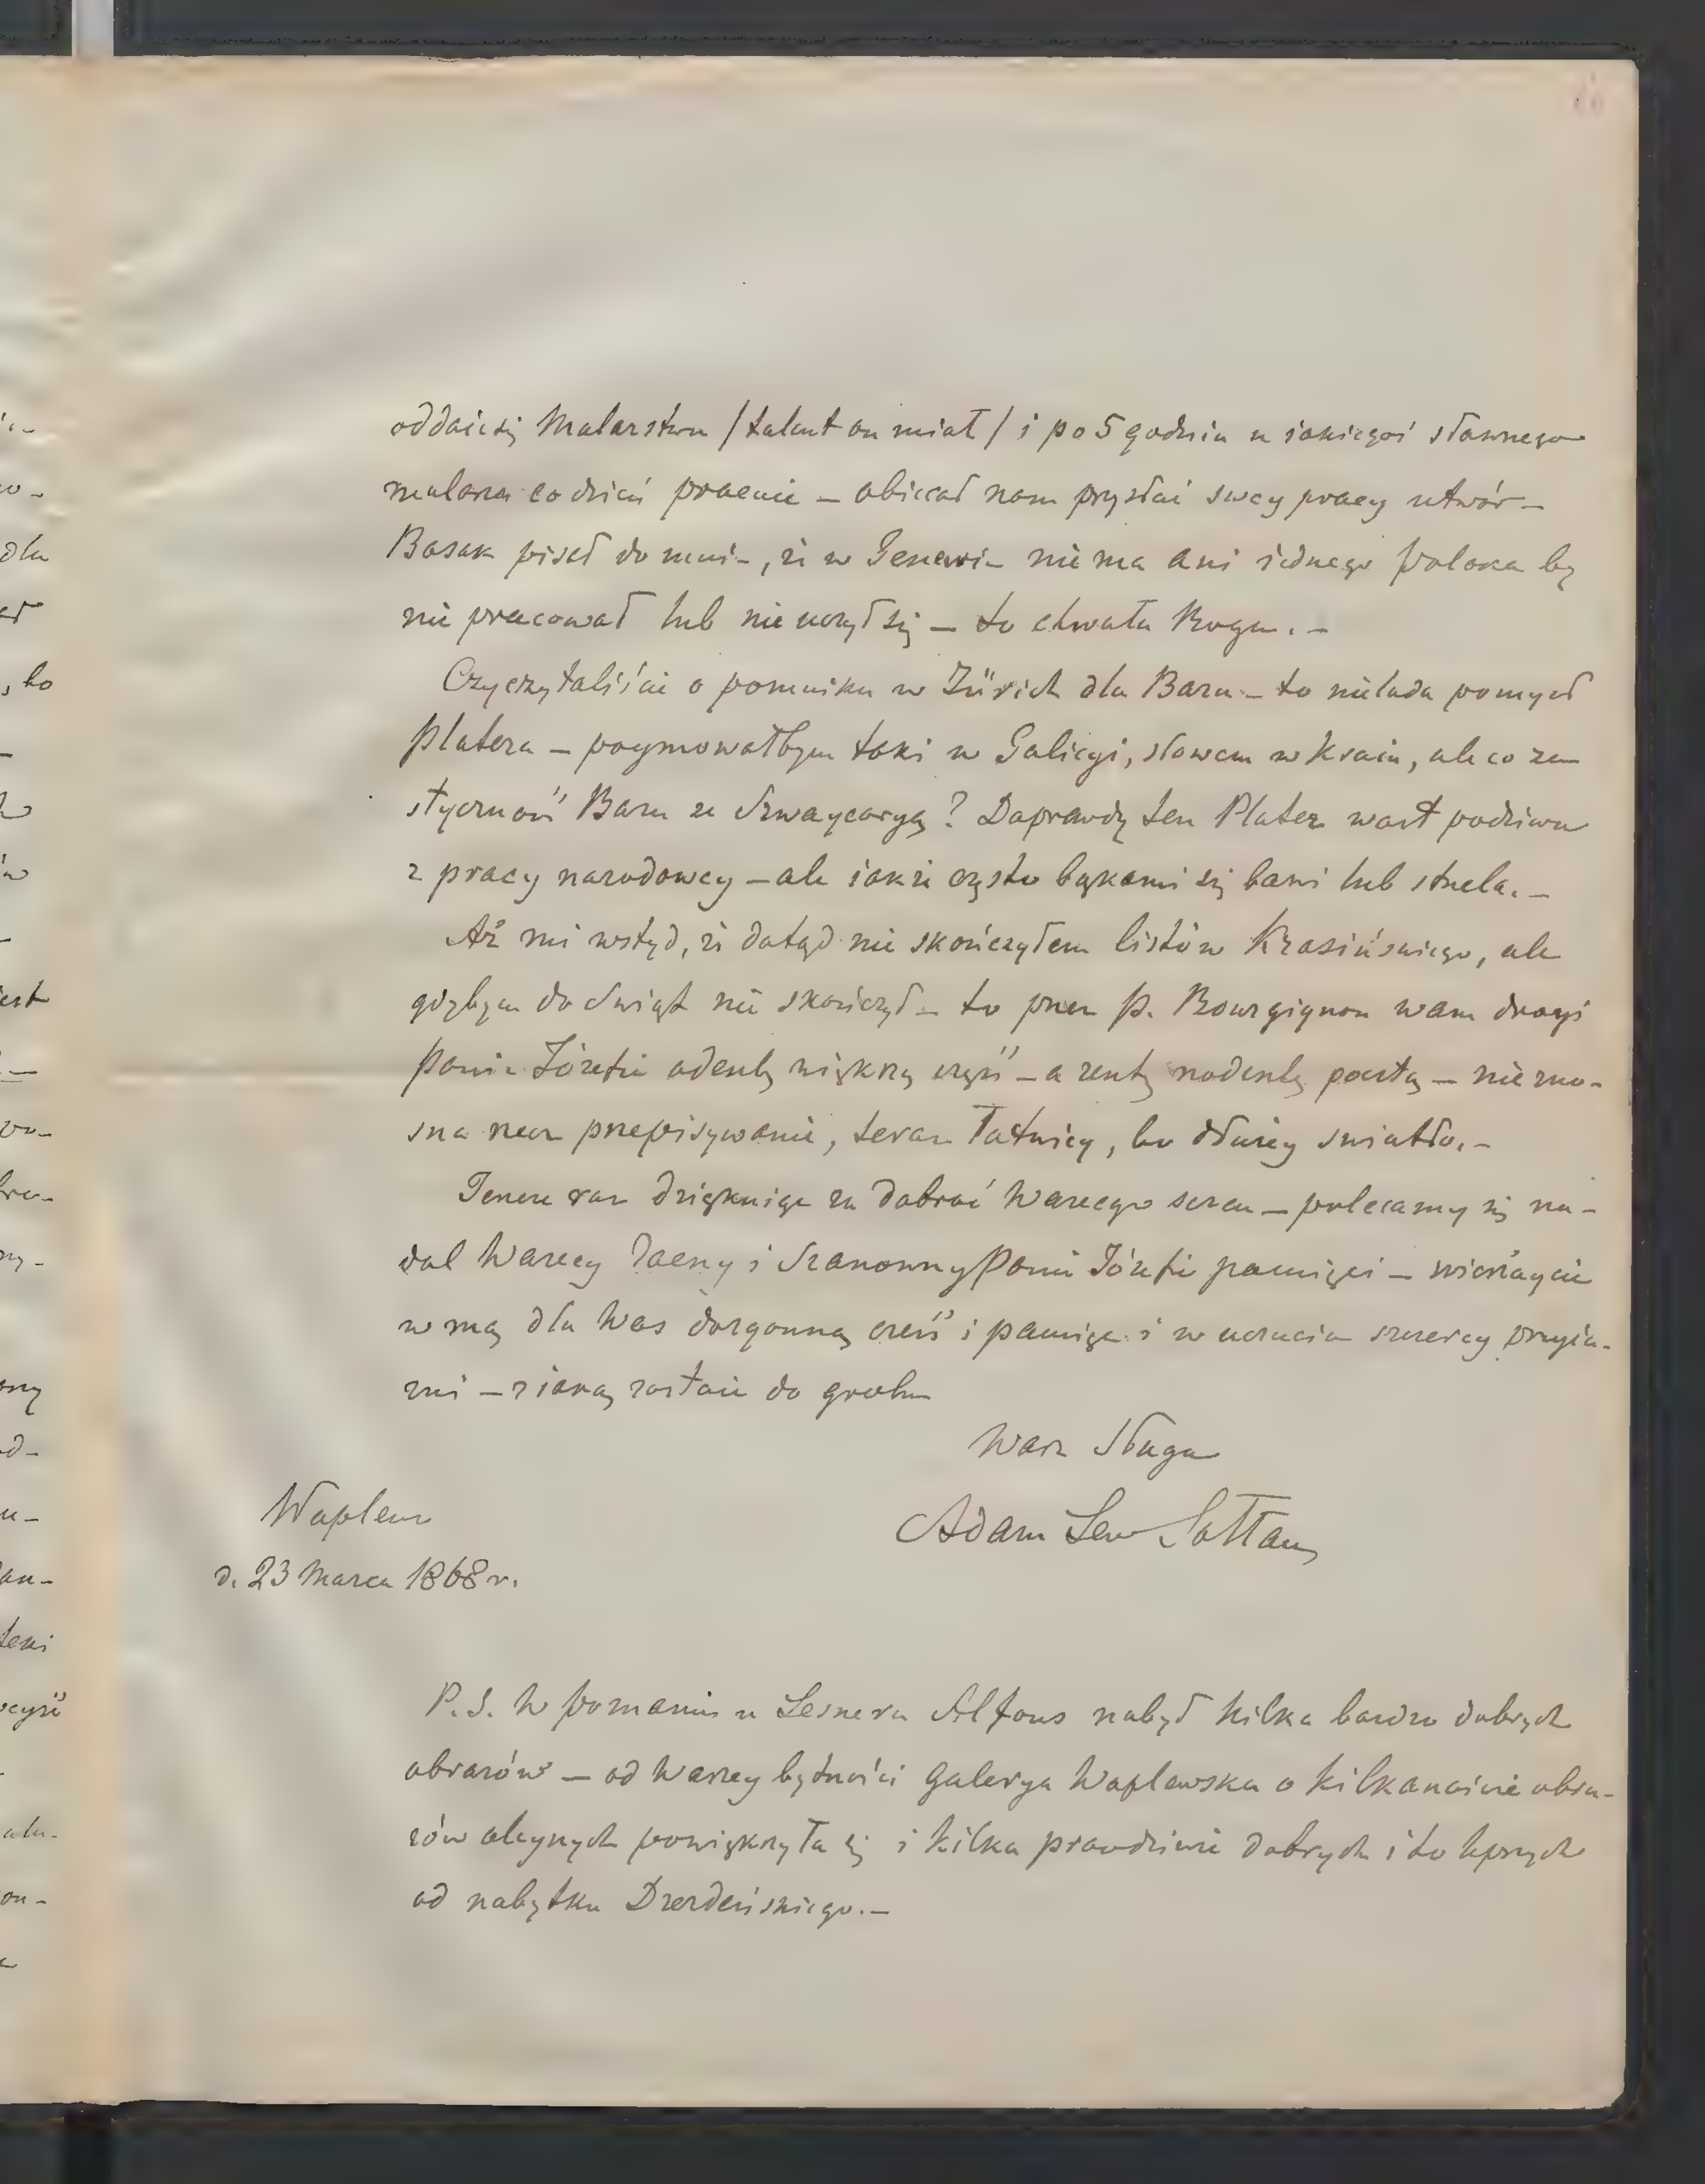 oddał się Malarstwu /talent on miał/ i po 5 godzin u jakiegoś sławnego
malarza codzień pracuie — obiecał nam przysłać swey pracy utwór —
Bosak pisał do mnie, że w Genewie niema ani iednego polaka by
nie pracował lub nie uczył się — to chwała Bogu. —
Czy czytaliście o pomniku w Zürich dla Baru — to nielada pomysł
Platera — poymowałbym taki w Galicyi, słowem w kraiu, ale co za
styczność Baru ze Szwaycaryą? Doprawdy ten Plater wart podziwu
z pracy narodowey — ale iakże często bąkami się bawi lub strzela. —
Aż mi wstyd, że dotąd nie skończyłem listów Krasińskiego, ale
gdybym do Swiąt nie skończył — to przez p. Bourgignon wam drogi
panie Józefie odeszlę większą część — a resztę nadeszlę pocztą — nie zno-
sna rzecz przepisywanie, teraz łatwiey, bo dłużey swiatło. —
Ieszcze raz dziękuię za dobroć Waszego serca — polecamy się na-
dal Waszey Zacny i Szanowny Panie Józefie pamięci — wierzaycie
w mą dla Was dozgonną cześć i pamięć i w uczucia szczerey przyia-
zni — z iaką zostaię do grobu
Wasz Sługa
Adam Lew Sołtan
Waplewo
d. 23 Marca 1868 r.
P.S. W poznaniu u Lesnera Alfons nabył kilka bardzo dobrych
obrazów — od Waszey bytności galerya Waplewska o kilkanaście obra-
zów oleynych powiększyła się i kilka prawdziwie dobrych i to lepszych
od nabytku Drezdeńskiego. —